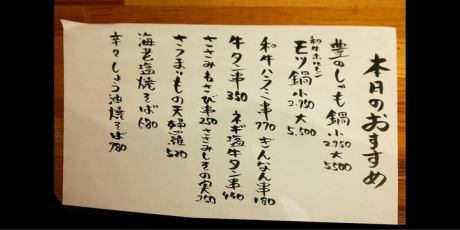 本日のおすすめ
豊のしゃも鍋 小2.750 大5.500
和牛ホルモン
モツ鍋 小2.750 大5.500
和牛ハラミ串770 ぎんなん串180
牛タン串350 ネギ塩牛タン串450
ささみわさび串250 ささみしその実250
さつまいもの天婦羅520
海老塩焼そば680
辛々しょう油焼そば780